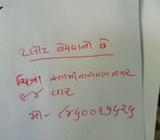 પ્લોટ વેચવાનો છે
ચિત્રા સ્વામીનારાયણ નગર
૯૪ વાર
મો- ૯૪૨૦૦૨૭૫૨૬